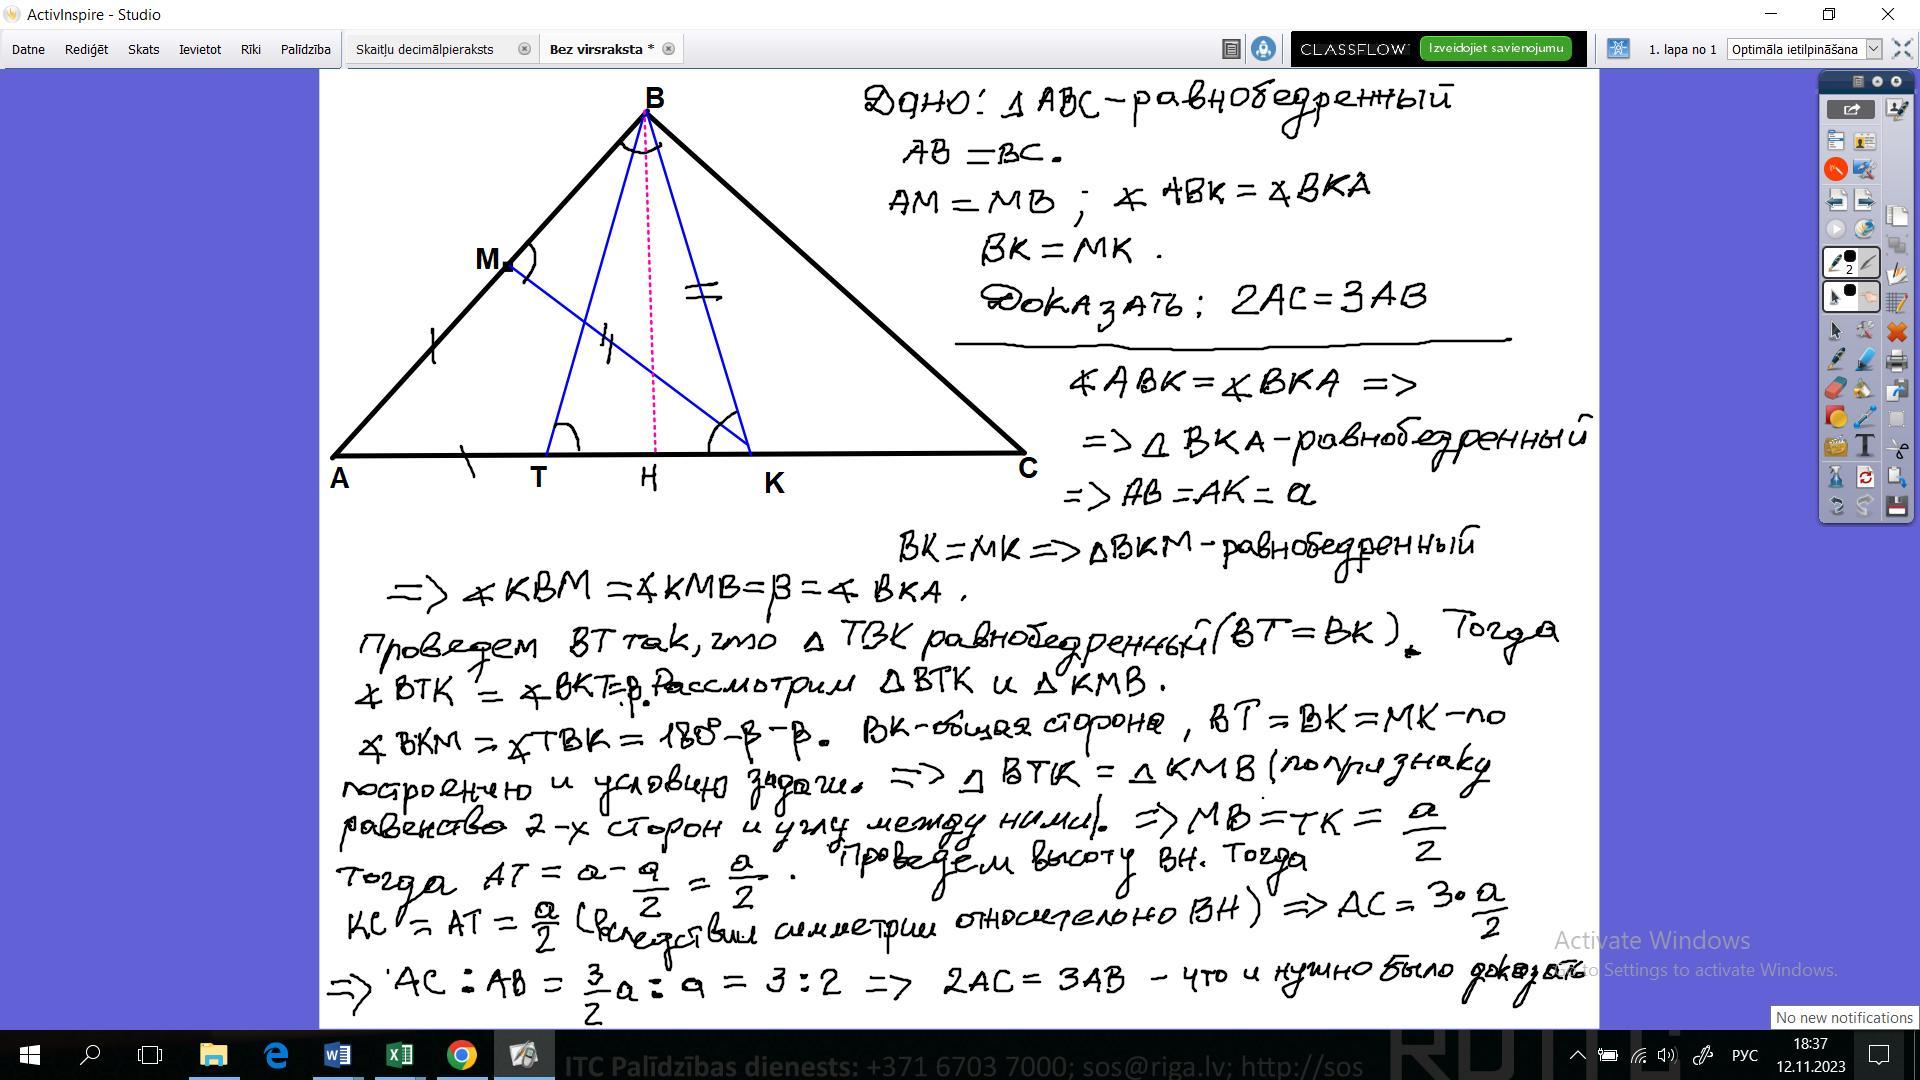 ActivInspire - Studio
Datne Rediģēt Skats Ievietot Rīki Palīdzība Skaitļu decimālpieraksts Bez virsraksta * CLASSFLOW Izveidojiet savienojumu 1. lapa no 1 Optimāla ietilpināšana
B
M
A T H K C
Дано: Δ ABC - равнобедренный
AB = BC.
AM = MB ; ∢ ABK = ∢ BKA
BK = MK .
Доказать: 2AC = 3AB
∢ ABK = ∢ BKA =>
=> Δ BKA - равнобедренный
=> AB = AK = a
BK = MK => Δ BKM - равнобедренный
=> ∢ KBM = ∢ KMB = β = ∢ BKA .
Проведем BT так, что Δ TBK равнобедренный (BT = BK). Тогда
∢ BTK = ∢ BKT = β. Рассмотрим Δ BTK и Δ KMB.
∢ BKM = ∢ TBK = 180° - β - β. BK - общая сторона, BT = BK = MK - по
построению и условию задачи. => Δ BTK = Δ KMB (по признаку
равенства 2-х сторон и углу между ними). => MB = TK = a/2
Тогда AT = a - a/2 = a/2 . Проведем высоту BH. Тогда
KC = AT = a/2 (вследствии симметрии относительно BH) => AC = 3 · a/2
=> AC : AB = 3/2 a : a = 3 : 2 => 2AC = 3AB - что и нужно было доказать
Activate Windows
Go to Settings to activate Windows.
No new notifications
2
ITC Palīdzības dienests: +371 6703 7000; sos@riga.lv; http://sos
РУС 18:37
12.11.2023